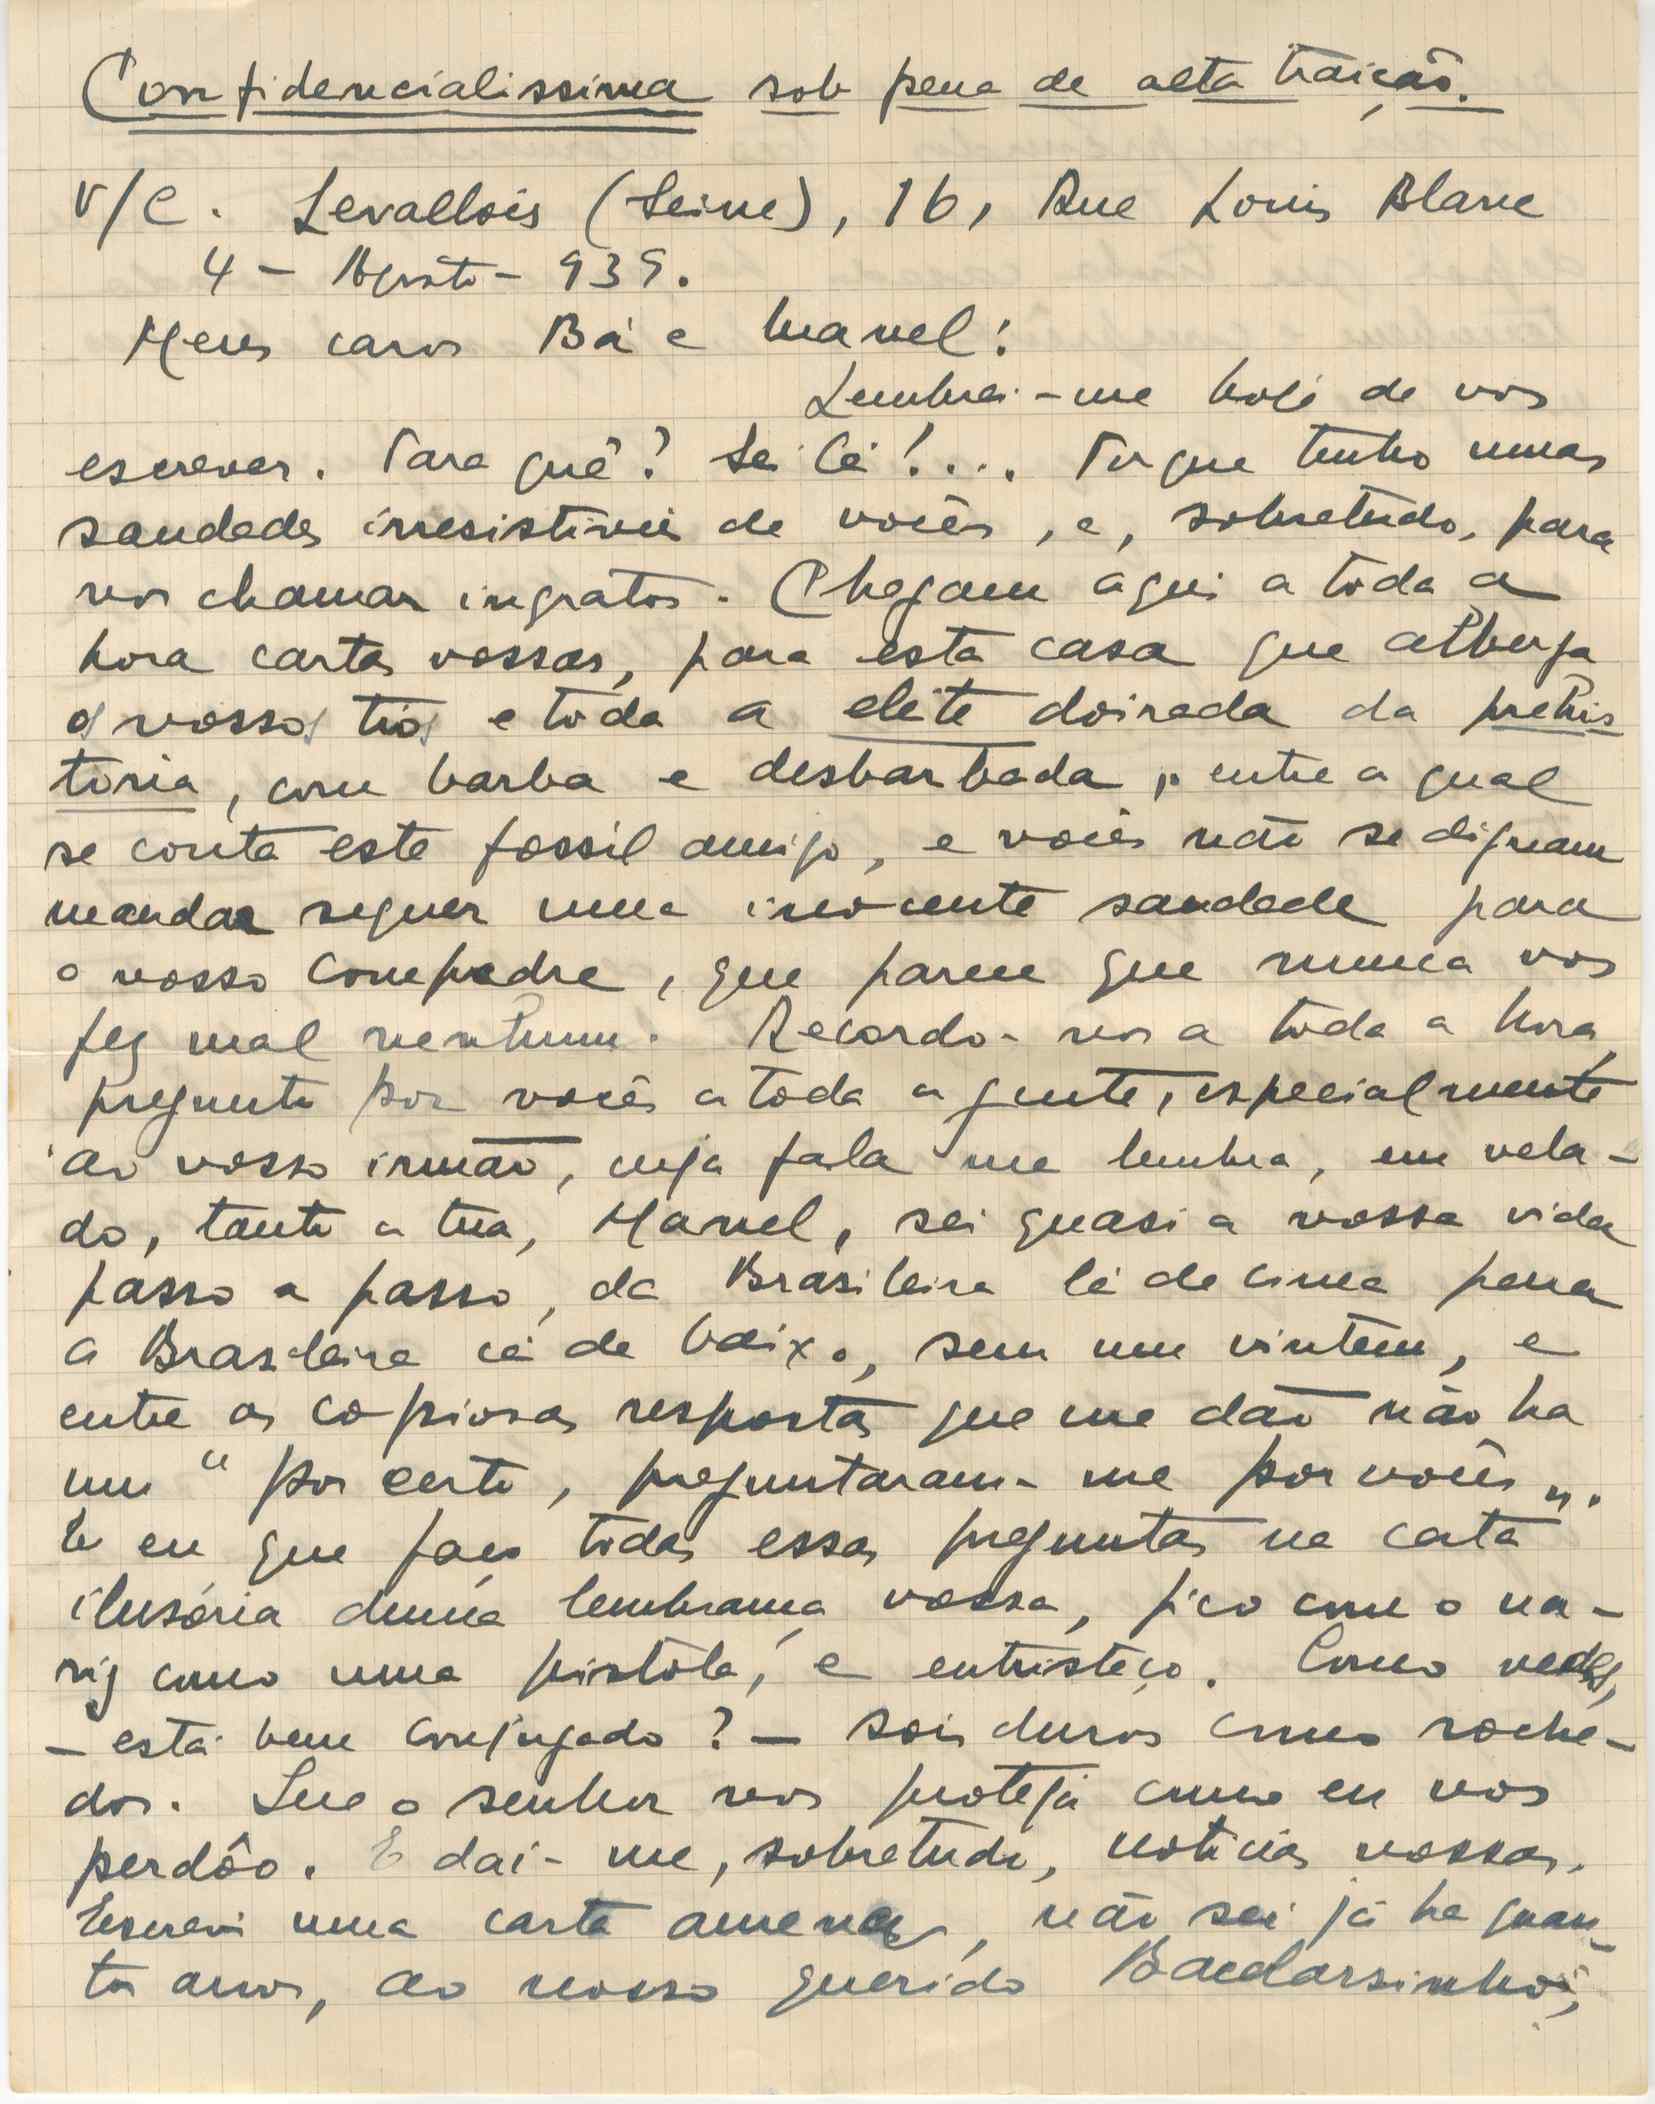 Confidencialissima sob pena de alta traição.
V/C. Levallois (Seine), 16, Rue Louis Blanc
4 - Agosto - 939.
Meus caros Bá e Manel:
Lembrei-me hoje de vos
escrever. Para quê? Sei lá!.... Porque tenho umas
saudades irresistiveis de vocês, e, sobretudo, para
vos chamar ingratos. Chegam aqui a toda a
hora cartas vossas, para esta casa que alberga
os vossos tios e toda a elite doirada da prehis
toria, com barba e desbarbada, entre a qual
se conta este fossil amigo, e vocês não se dignam
mandar sequer uma inocente saudade para
o vosso compadre, que parece que nunca vos
fez mal nenhum. Recordo-vos a toda a hora,
pregunto por vocês a toda a gente, especialmente
ao vosso irmão, cuja fala me lembra, em vela-
do, tanto a tua, Manel, sei quasi a vossa vida
passo a passo, da Brasileira lá de cima para
a Brasileira cá de baixo, sem um vintem, e
entre as copiosas respostas que me dão não ha
um "por certo, preguntaram-me por vocês".
E eu que faço todas essas preguntas na cata
ilusória duma lembrança vossa, fico com o na-
riz como uma pistola, e entristeço. Como vedes,
- está bem conjugado? - sois duros como roche-
dos. Que o senhor vos proteja como eu vos
perdôo. E dai-me, sobretudo, noticias vossas.
Escrevi uma carta amena, não sei já ha quan-
tos anos, ao nosso querido